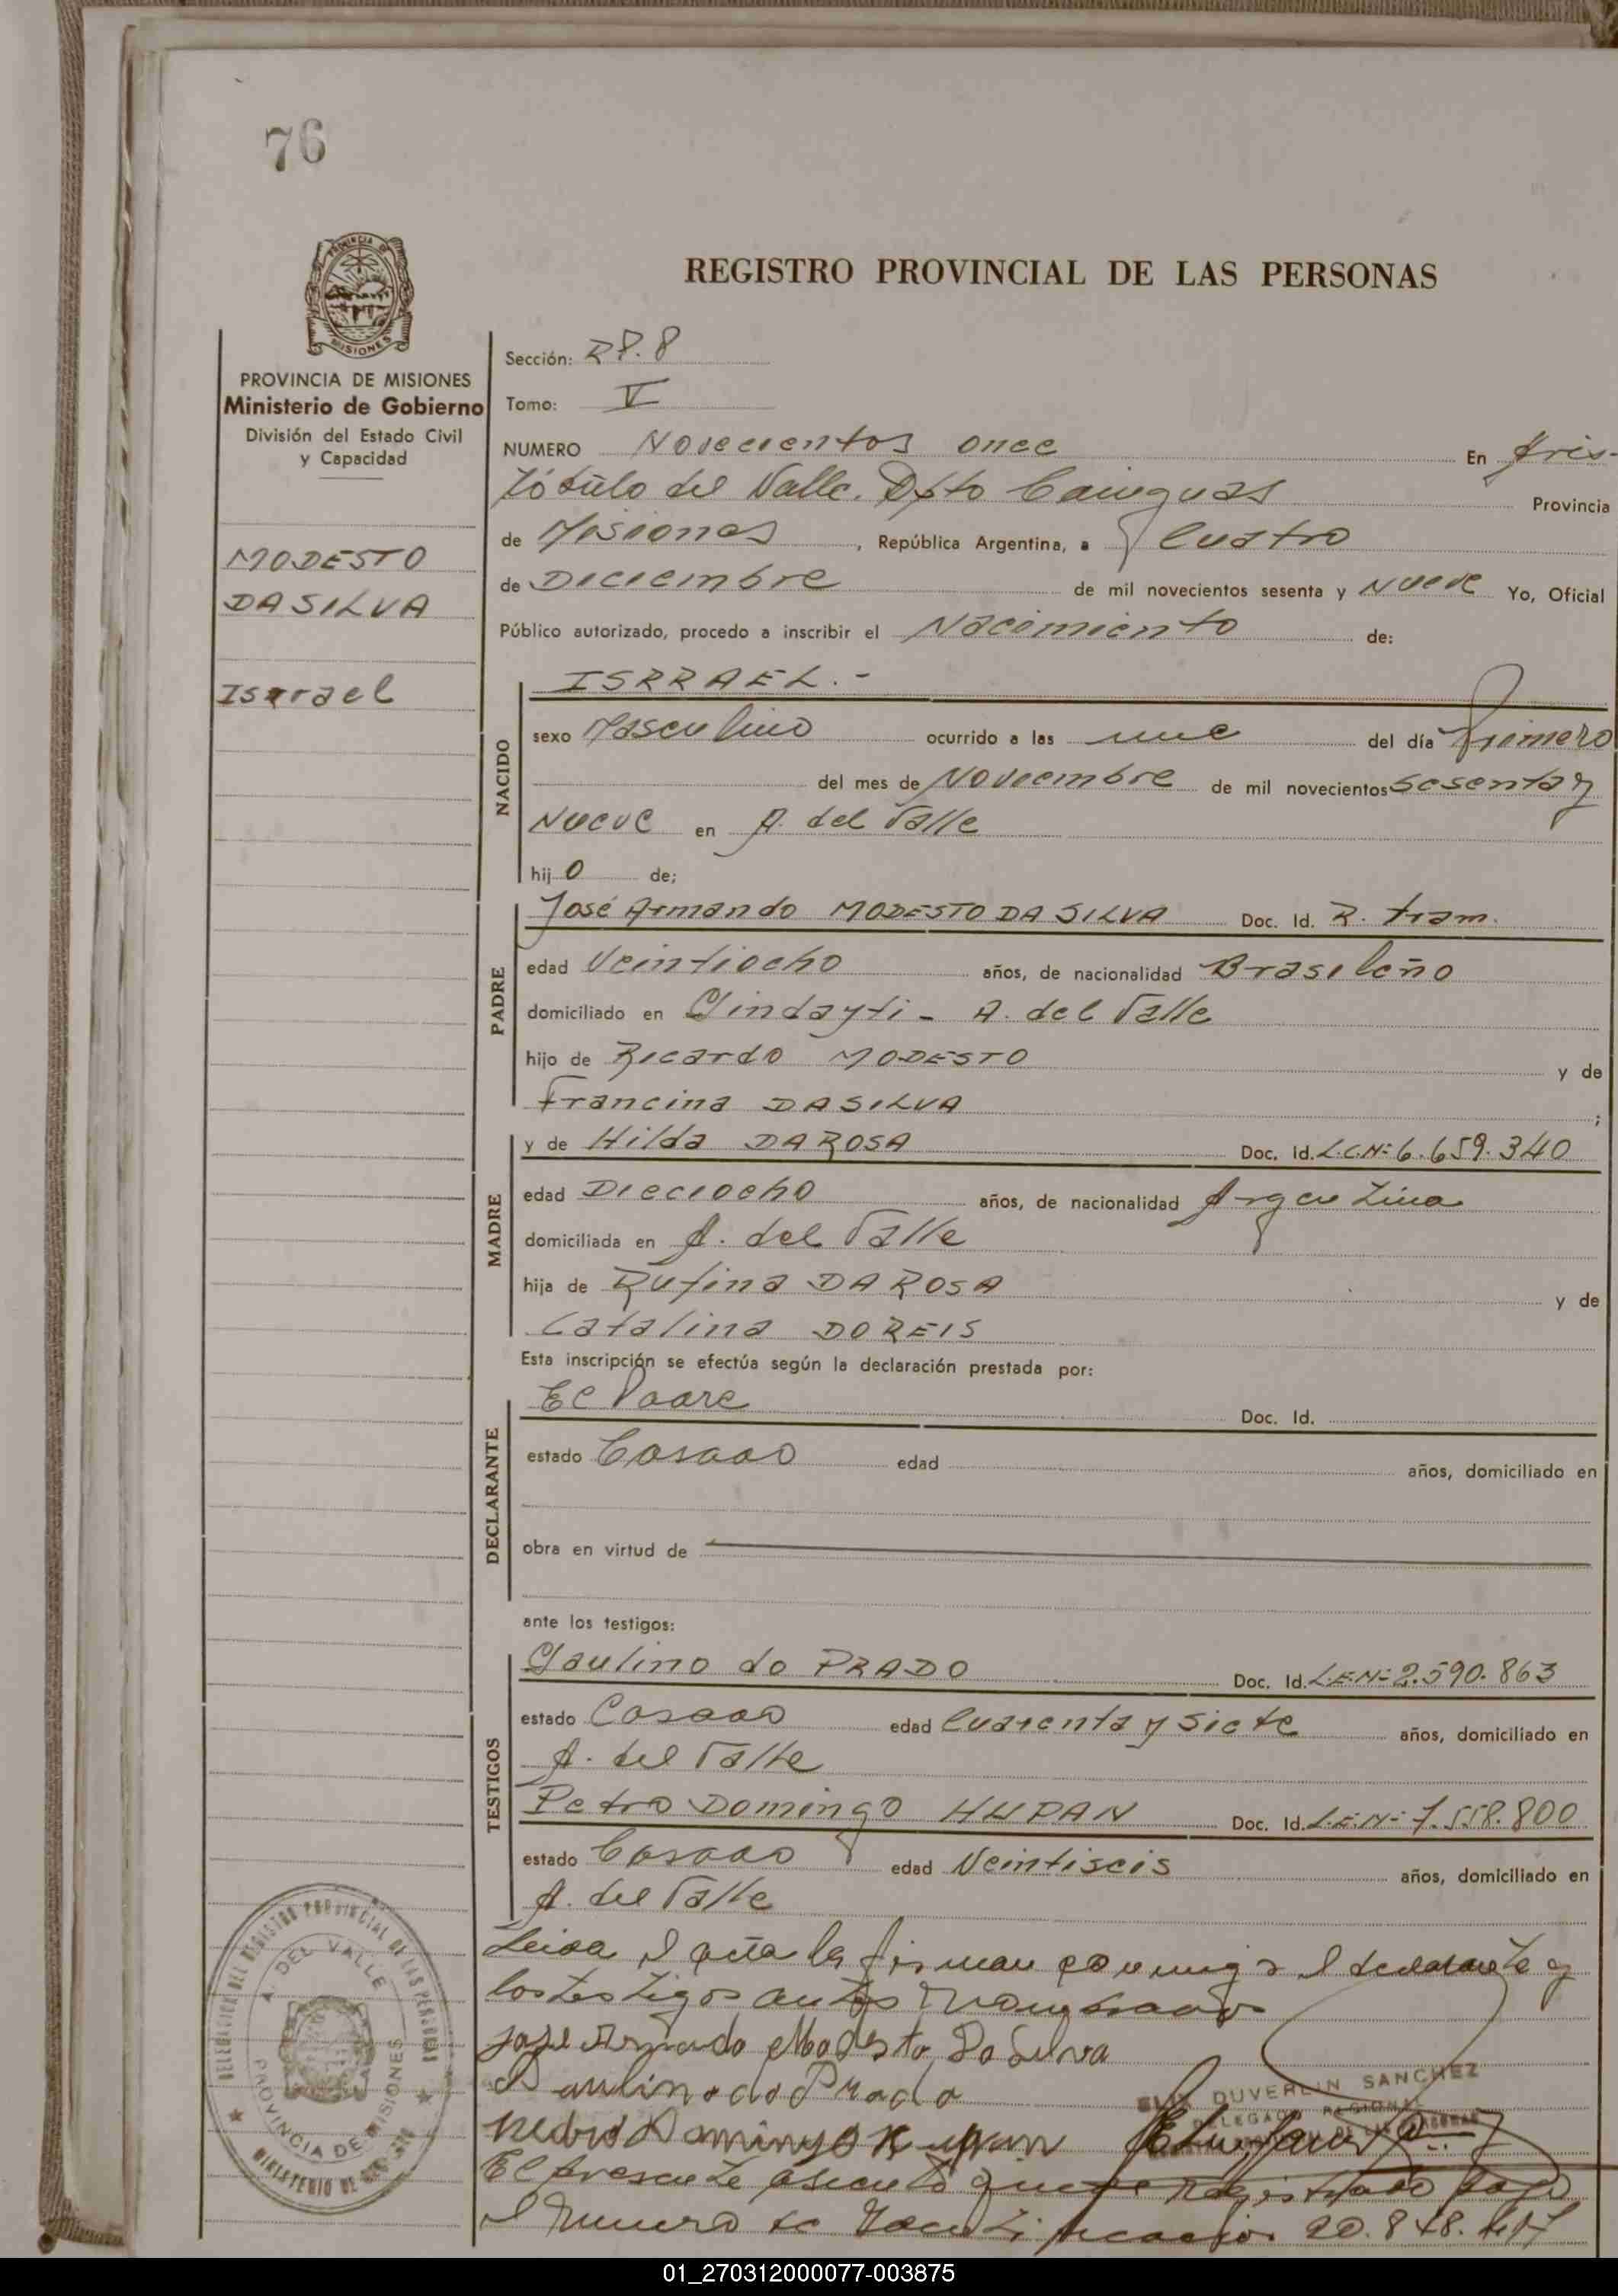 76
REGISTRO PROVINCIAL DE LAS PERSONAS
PROVINCIA DE MISIONES
Ministerio de Gobierno
División del Estado Civil
y Capacidad
MODESTO
DA SILVA
Isrrael
Sección: RP. 8
Tomo: V
NUMERO Novecientos once En Aris-
tóbulo del Valle. Dpto Cainguas Provincia
de Misiones, República Argentina, a Cuatro
de Diciembre de mil novecientos sesenta y Nueve Yo, Oficial
Público autorizado, procedo a inscribir el Nacimiento de:
NACIDO
ISRRAEL.-
sexo Masculino ocurrido a las una del día primero
del mes de Noviembre de mil novecientos sesenta y
Nueve en A. del Valle
hijo de;
PADRE
José Armando MODESTO DA SILVA Doc. Id. R. tram.
edad Veintiocho años, de nacionalidad Brasileño
domiciliado en Pindayti - A. del Valle
hijo de Ricardo MODESTO y de
Francina DA SILVA ;
MADRE
y de Hilda DA ROSA Doc. Id. L.C.Nº 6.659.340
edad Dieciocho años, de nacionalidad Argentina
domiciliada en A. del Valle
hija de Rufina DA ROSA y de
Catalina DOREIS
Esta inscripción se efectúa según la declaración prestada por:
DECLARANTE
El Padre Doc. Id.
estado Casado edad años, domiciliado en
obra en virtud de
ante los testigos:
TESTIGOS
Paulino do PRADO Doc. Id. L.E.Nº 2.590.863
estado Casado edad Cuarenta y Siete años, domiciliado en
A. del Valle
Petro Domingo HUPAN Doc. Id. L.E.Nº 7.558.800
estado Casado edad Veintiseis años, domiciliado en
A. del Valle
Leida el acta la firman conmigo el declarante y
los testigos antes nombrados
José Armando Modesto Da Silva
Paulino do Prado
Pedro Domingo
DUVERLIN SANCHEZ
DELEGADO REGIONAL
El presente asiento queda registrado bajo
el Numero de Identificacion 20.848.
DELEGACION DEL REGISTRO PROVINCIAL DE LAS PERSONAS
A. DEL VALLE
PROVINCIA DE MISIONES
MINISTERIO DE
PROVINCIA DE
MISIONES
01_270312000077-003875